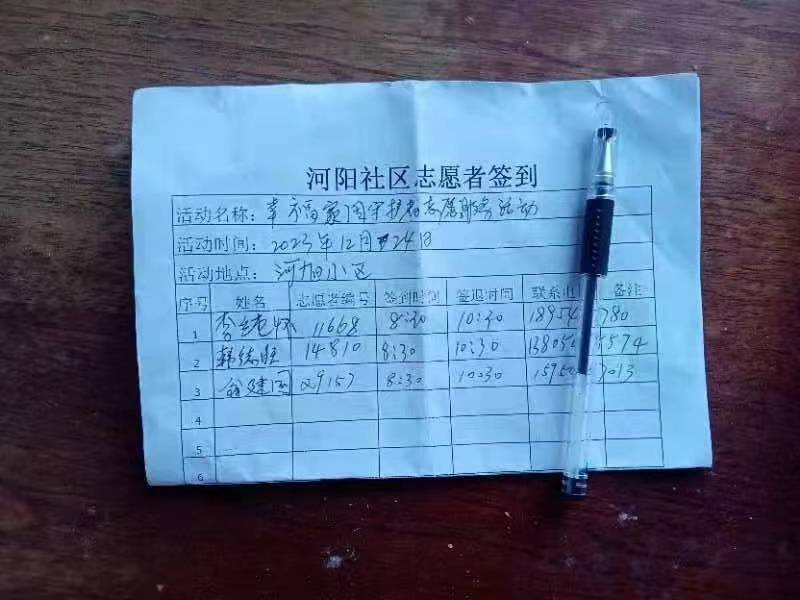 河阳社区志愿者签到
活动名称：幸福家园守护者志愿服务活动
活动时间：2023年12月24日
活动地点：河阳小区
序号 姓名 志愿者编号 签到时间 签退时间 联系电 备注
1 李 11668 8:30 10:30 18954 780
2 韩 14810 8:30 10:30 13805 574
3 建国 29157 8:30 10:30 1595 3013
4
5
6